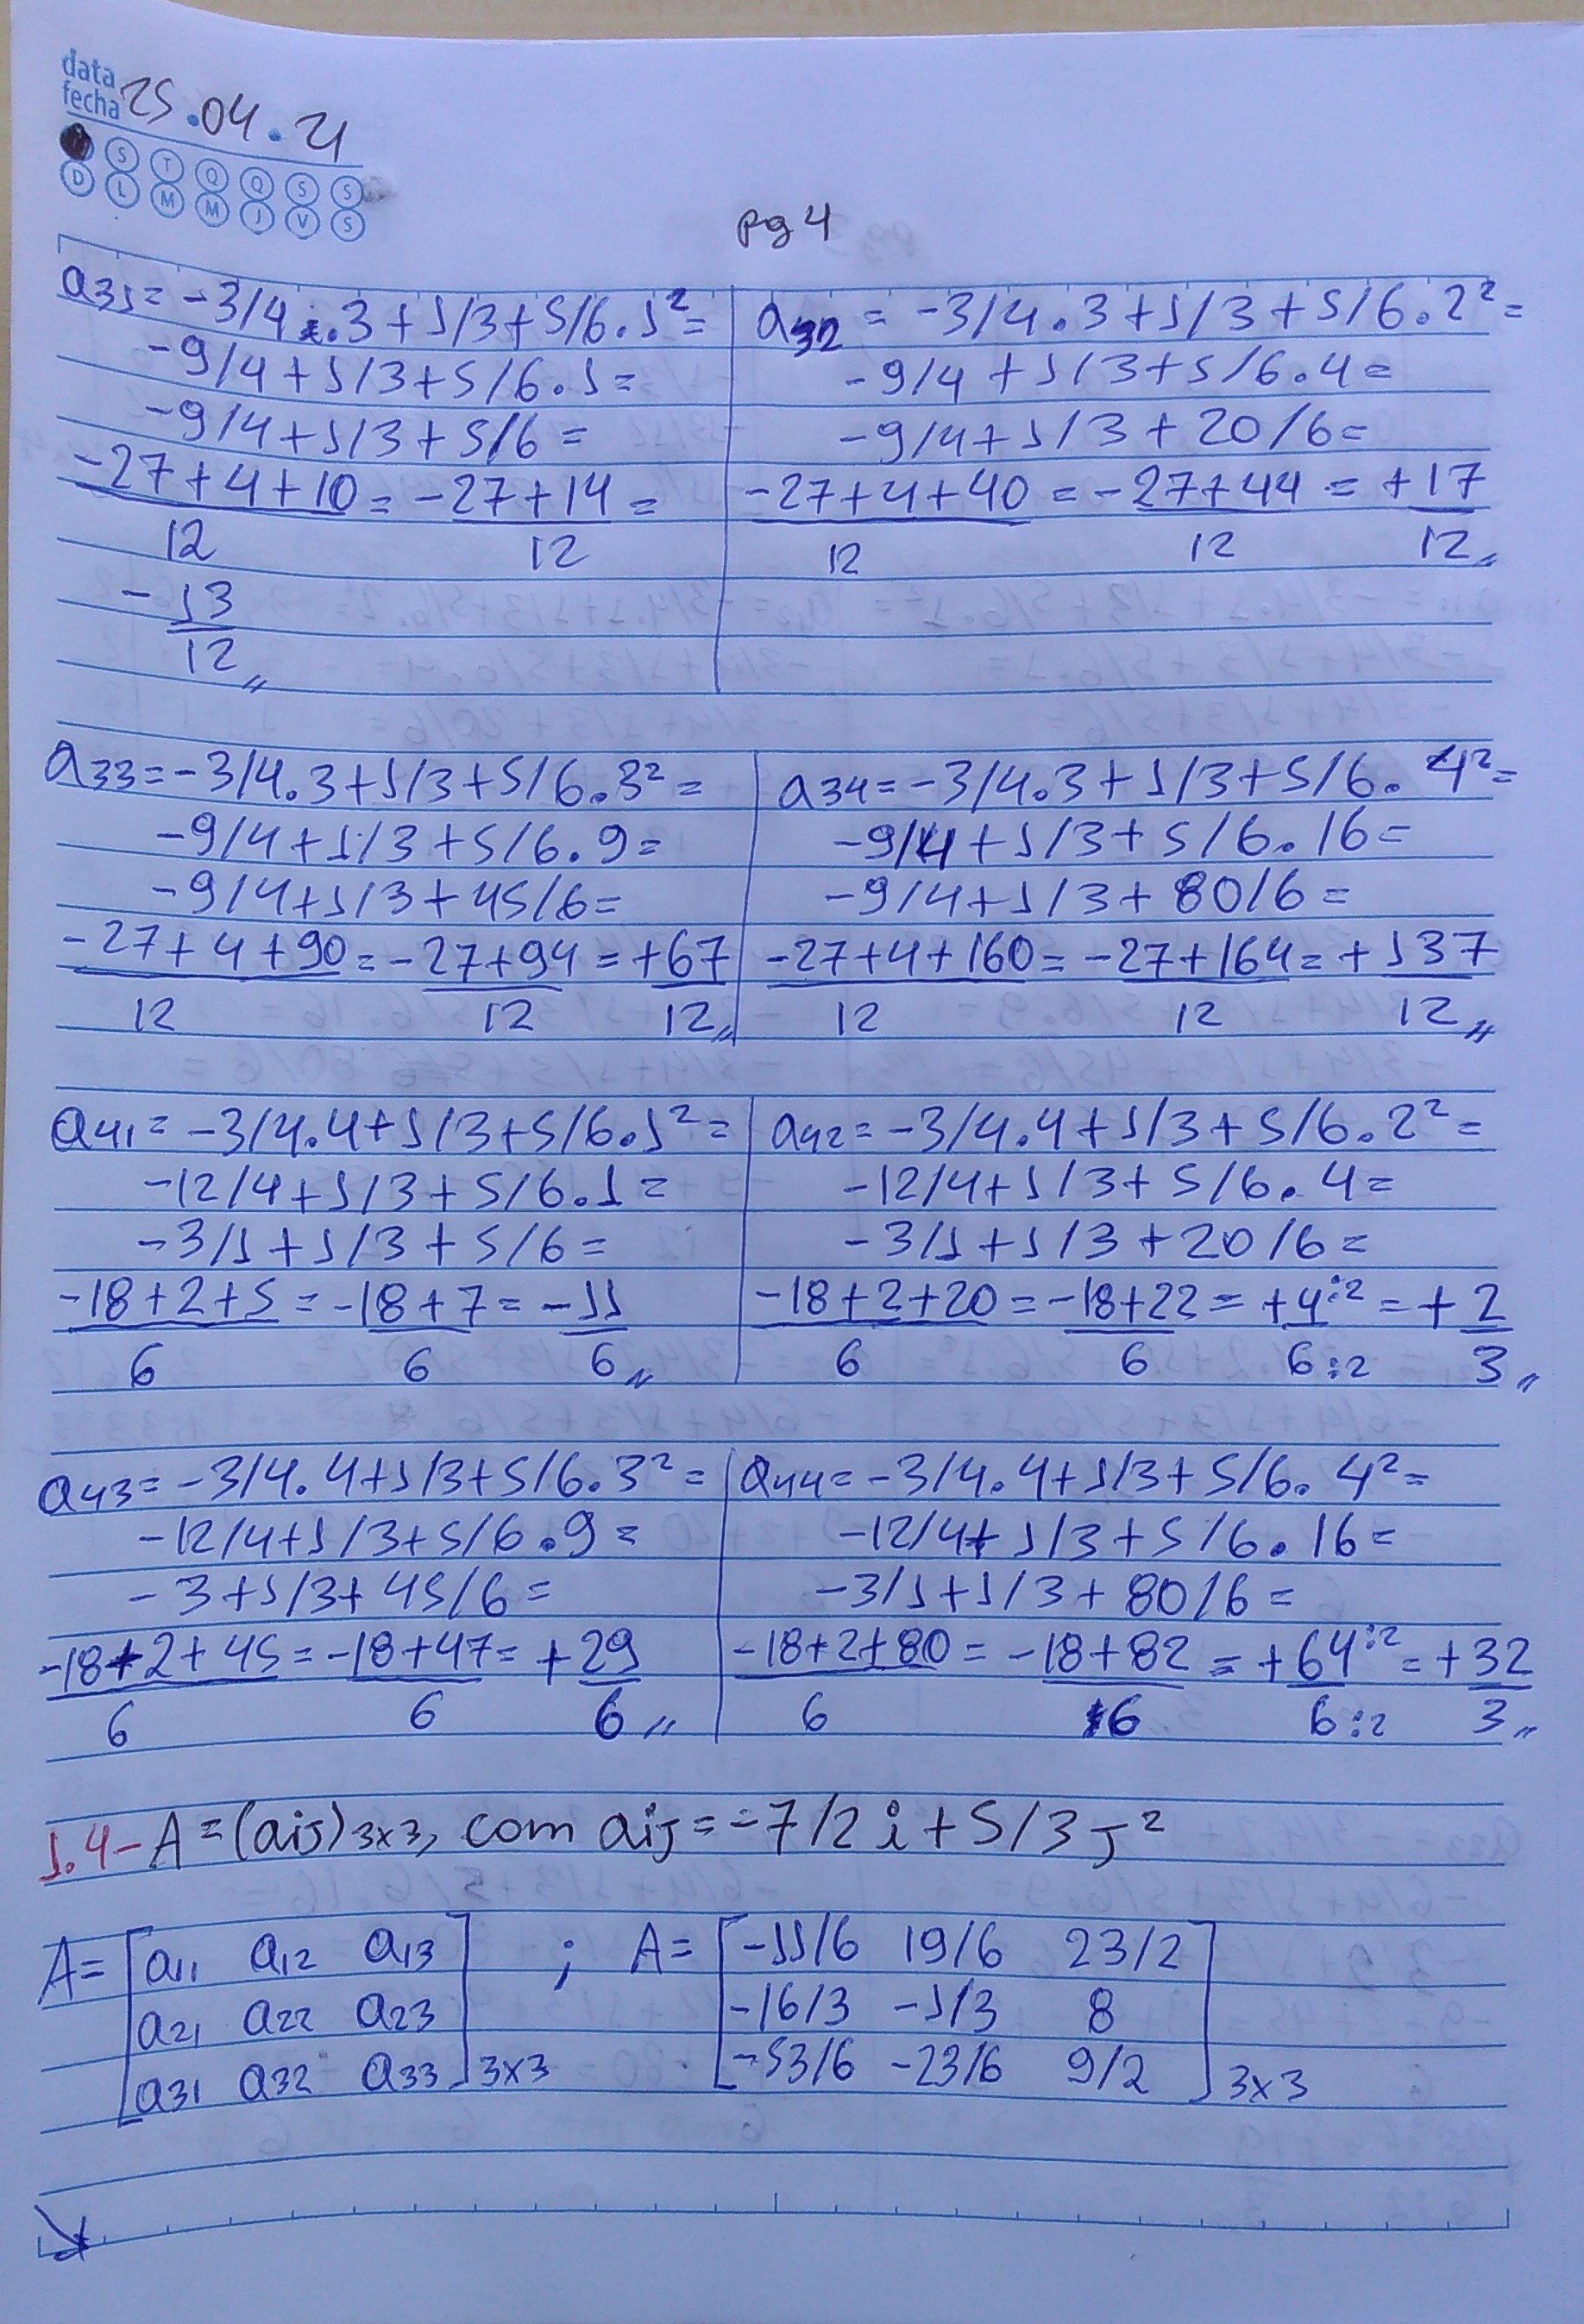 data
fecha 25.04.21
S T Q Q S S
D L M M J V S
pg 4
a31= -3/4.3+1/3+5/6.1²=
-9/4+1/3+5/6.1=
-9/4+1/3+5/6=
-27+4+10=-27+14=
12 12
-13
12 "
a32 = -3/4.3+1/3+5/6.2²=
-9/4+1/3+5/6.4=
-9/4+1/3+20/6=
-27+4+40=-27+44=+17
12 12 12 "
a33=-3/4.3+1/3+5/6.3²=
-9/4+1/3+5/6.9=
-9/4+1/3+45/6=
-27+4+90=-27+94=+67
12 12 12 "
a34=-3/4.3+1/3+5/6.4²=
-9/4+1/3+5/6.16=
-9/4+1/3+80/6=
-27+4+160=-27+164=+137
12 12 12 "
a41=-3/4.4+1/3+5/6.1²=
-12/4+1/3+5/6.1=
-3/1+1/3+5/6=
-18+2+5=-18+7=-11
6 6 6 "
a42=-3/4.4+1/3+5/6.2²=
-12/4+1/3+5/6.4=
-3/1+1/3+20/6=
-18+2+20=-18+22=+4:2=+2
6 6 6:2 3 "
a43=-3/4.4+1/3+5/6.3²=
-12/4+1/3+5/6.9=
-3+1/3+45/6=
-18+2+45=-18+47=+29
6 6 6 "
a44=-3/4.4+1/3+5/6.4²=
-12/4+1/3+5/6.16=
-3/1+1/3+80/6=
-18+2+80=-18+82=+64:2=+32
6 6 6:2 3 "
1.4- A=(aij)3x3, com aij=-7/2i+5/3j²
A=[a11 a12 a13 ; A=[-11/6 19/6 23/2
a21 a22 a23 -16/3 -1/3 8
a31 a32 a33]3x3 -53/6 -23/6 9/2]3x3